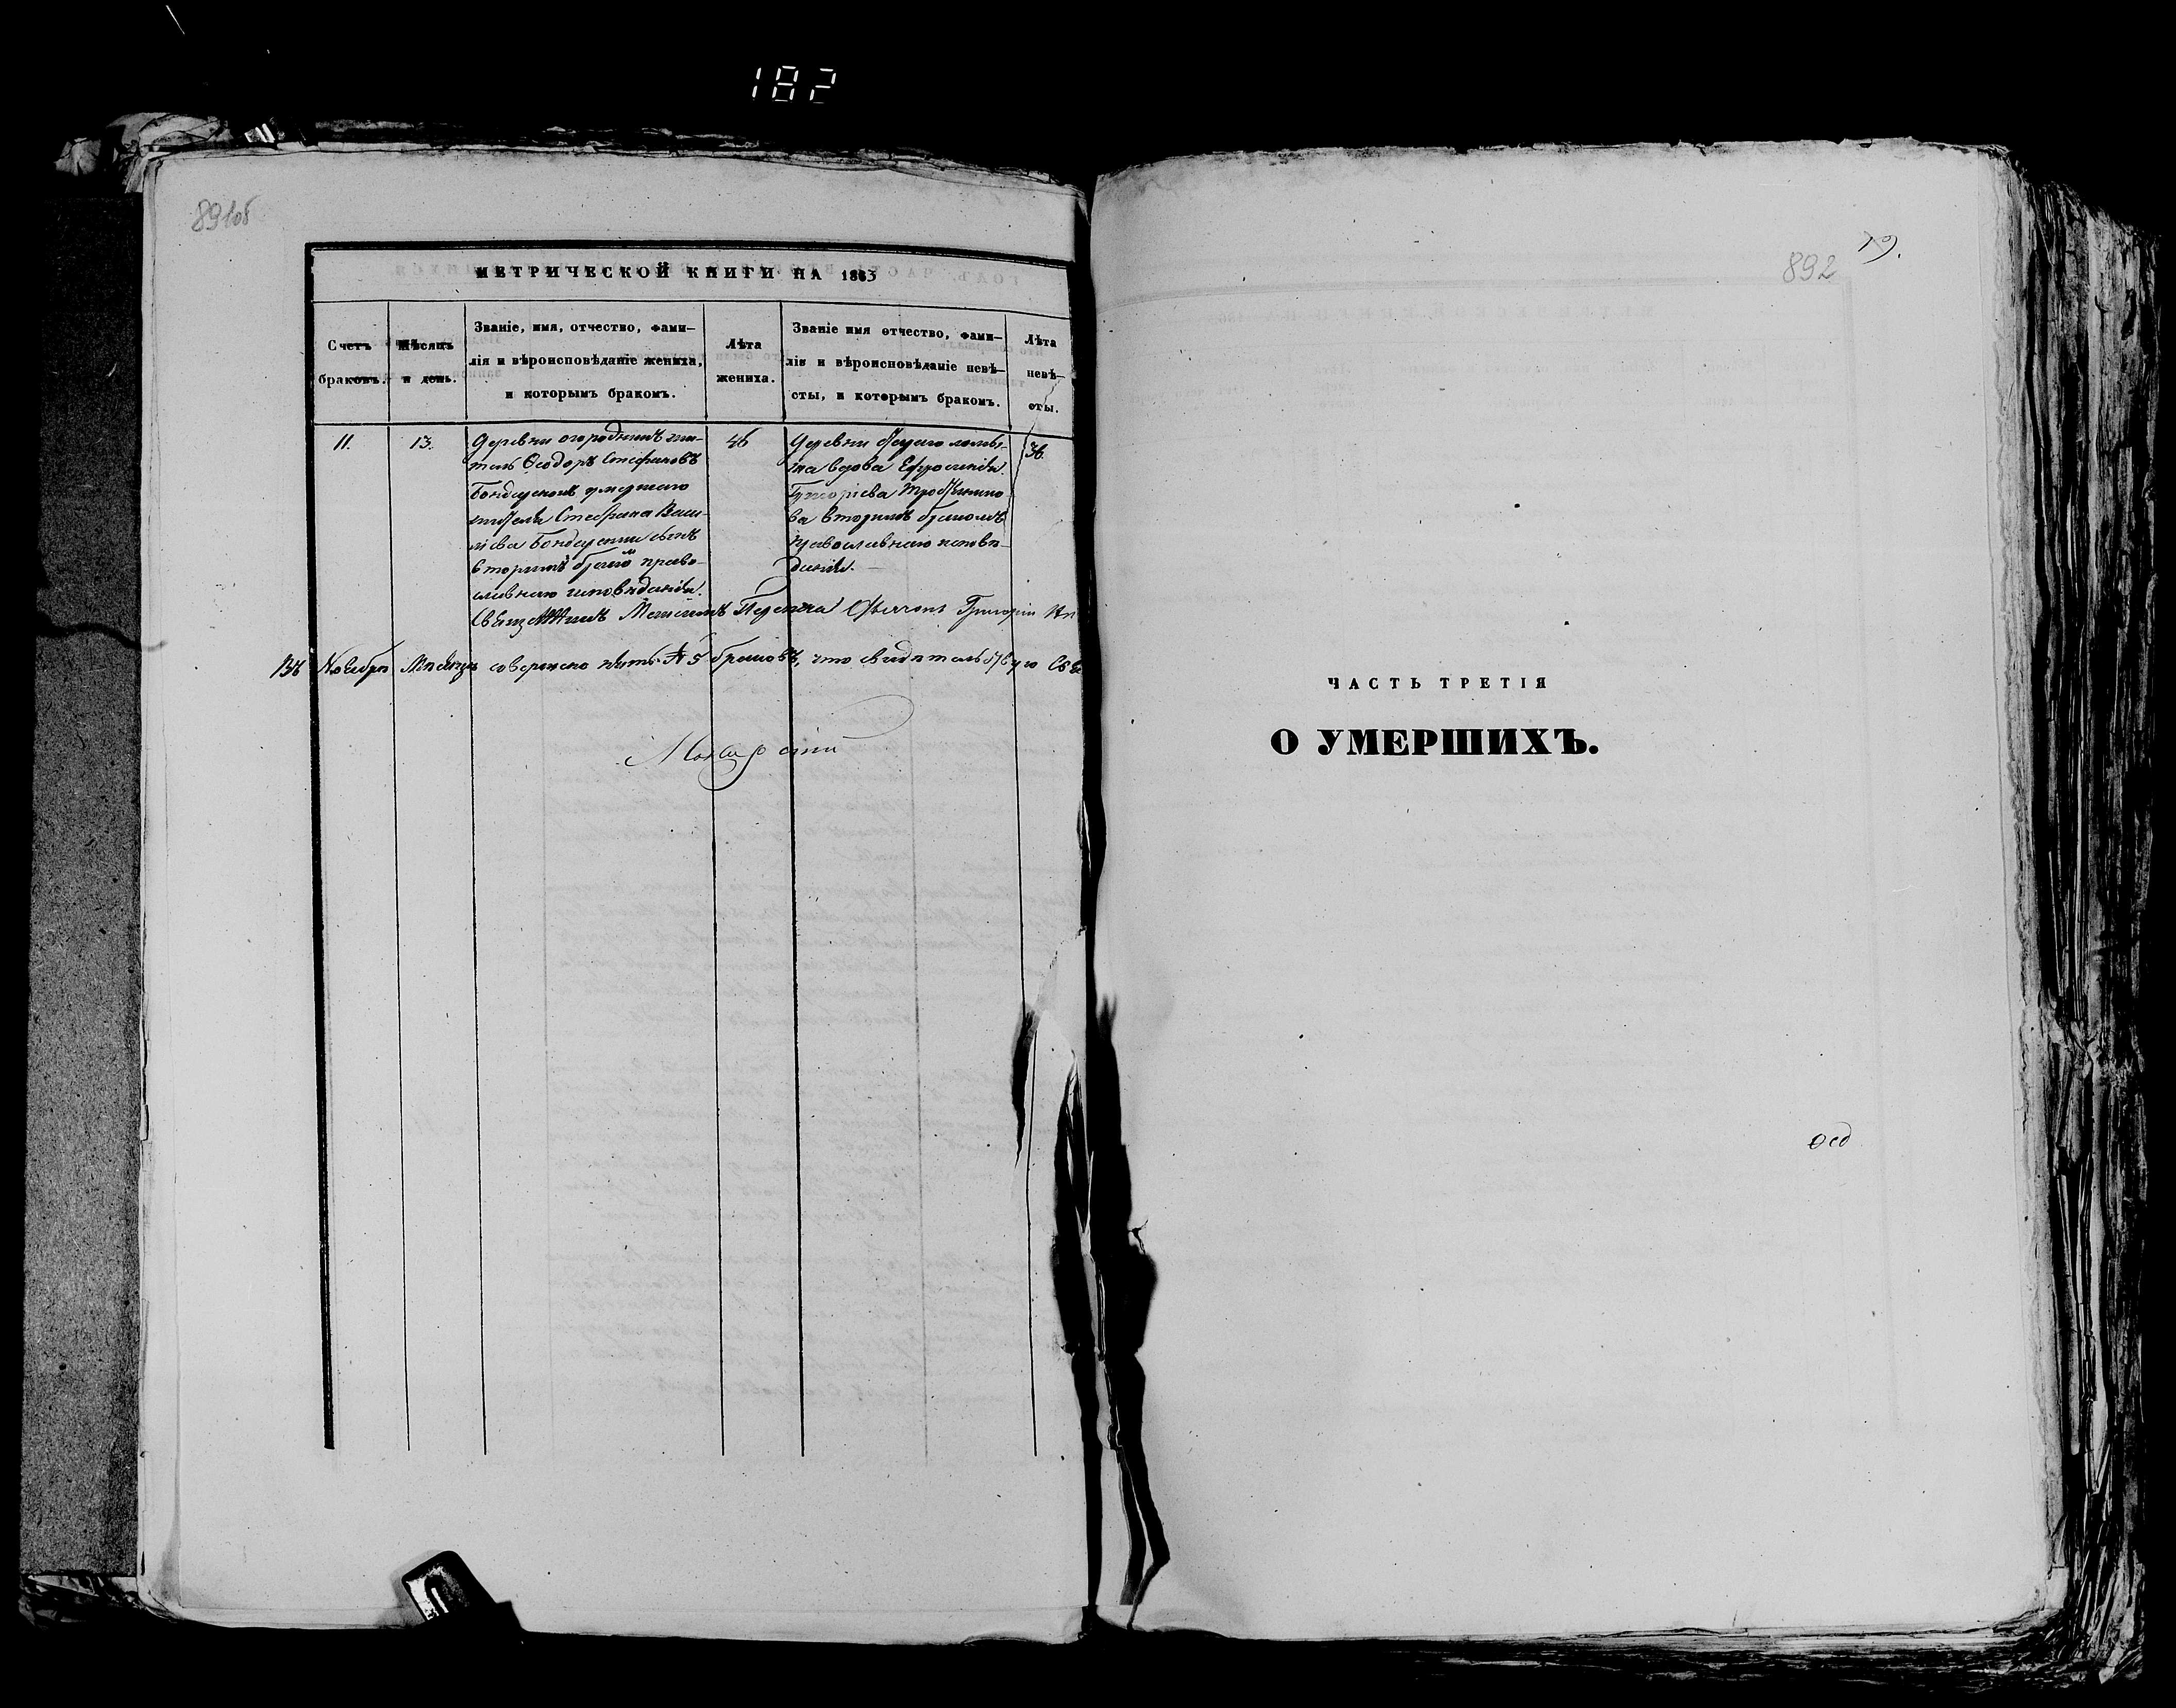 182
891об
МЕТРИЧЕСКОЙ КНИГИ НА 1863
Счетъ браковъ.
Мѣсяцъ и день.
Званіе, имя, отчество, фами-
лія и вѣроисповѣданіе жениха,
и которымъ бракомъ.
Лѣта
жениха.
Званіе имя отчество, фами-
лія и вѣроисповѣданіе невѣ-
сты, и которымъ бракомъ.
Лѣта
невѣ-
сты.
11.
13.
Деревни
Ѳеодоръ Стефановъ
Бондаренко умершаго
жителя Стефана Васи-
лiева Бондаренка сынъ
вторымъ бракомъ право-
славнаго исповѣданія.
46
Деревни
вдова Ефросинія
Григоріева
ва вторымъ бракомъ
православнаго исповѣ-
данія.
36.
Священникъ Григорій
Въ Ноябрѣ Мѣсяцѣ совершено пять 5 браковъ, что свидѣтельствую Свя
892
79.
ЧАСТЬ ТРЕТІЯ
О УМЕРШИХЪ.
Ѳед